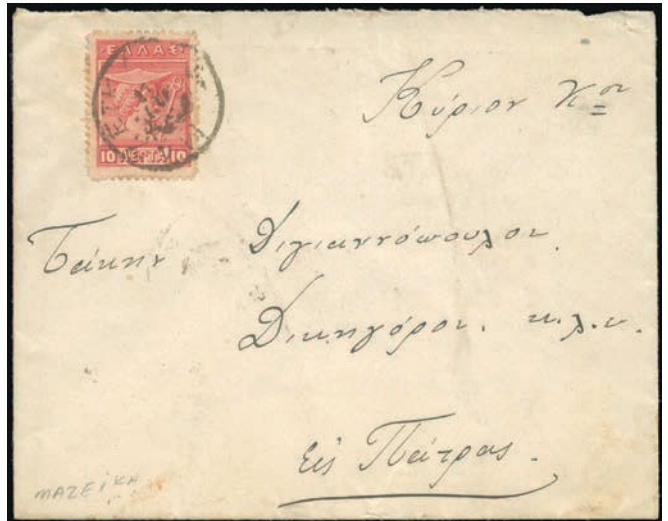 ΕΛΛΑΣ
10 ΛΕΠΤΑ 10
Κύριον Κον
Τάκην Διγιαννόπουλον
Δικηγόρον. κ.λ.π.
Εἰς Πάτρας.
ΜΑΖΕΙΚΑ